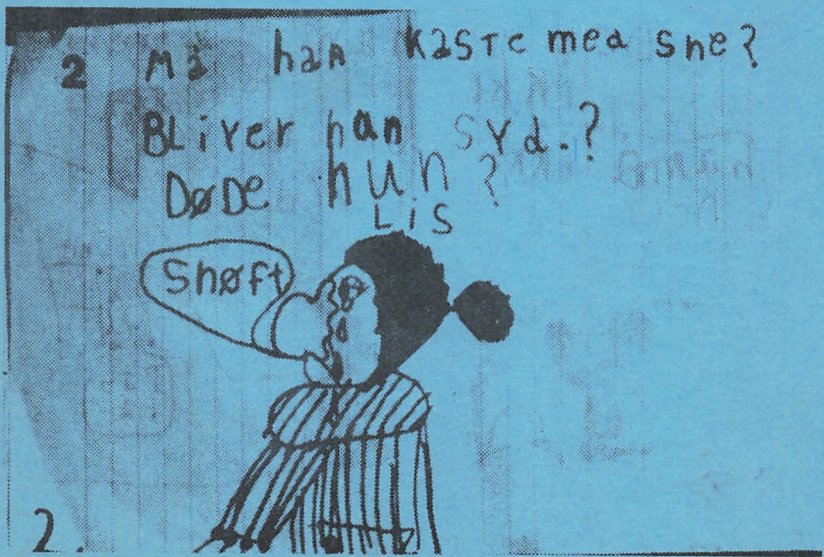 2 Må han kaste med sne?
Bliver han syd.?
Døde hun?
Lis
Snøft
2.